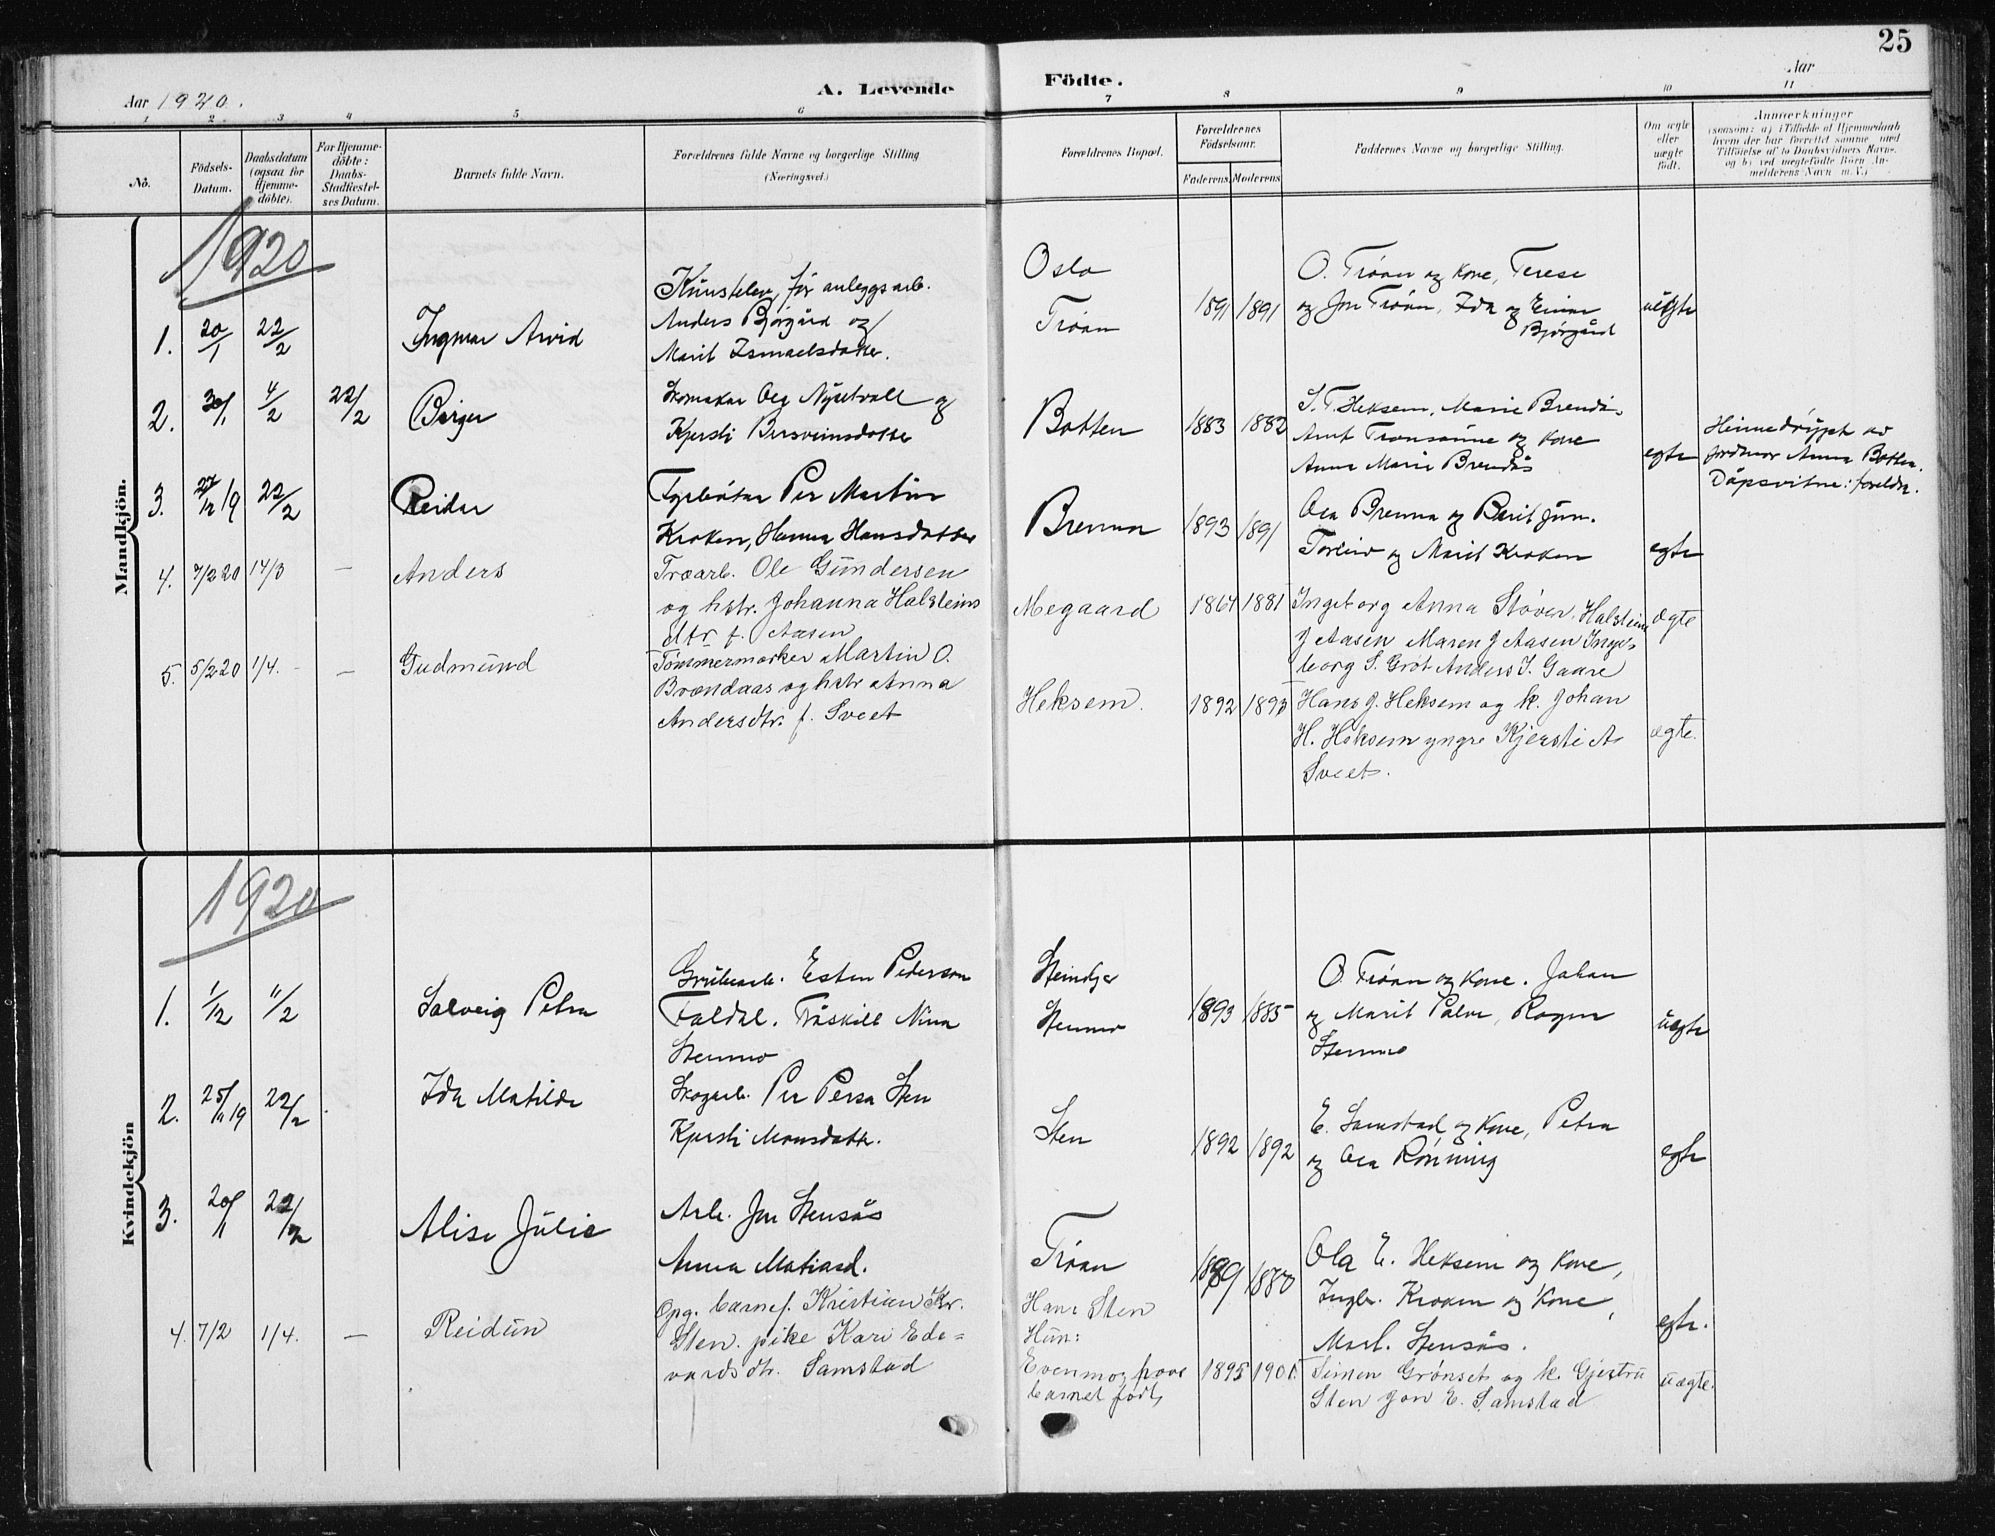 25
Aar 1920.
A. Levende
Födte.
Aar
1 2 3 4 5 6 7 8 9 10 11
No.
Födsels-
Datum.
Daabsdatum
(ogsaa for
Hjemme-
döbte).
For Hjemme-
döbte:
Daabs-
Stadfæstel-
ses Datum.
Barnets fulde Navn.
Forældrenes fulde Navne og borgerlige Stilling
(Næringsvei.)
Forældrenes Bopæl.
Forældrenes
Födselsaar.
Faderens. Moderens
Faddernes Navne og borgerlige Stilling.
Om ægte
eller
uægte
födt.
Anmærkninger
(saasom: a) i Tilfælde af Hjemmedaab
hvem der har forrettet samme med
Tilföielse af to Daabsvidners Navne.
og b) ved uægtefödte Börn An-
melderens Navn m. V.)
Mandkjön.
1920
1. 20/1 22/2
Ingmar Arvid
Kunstelev, før anleggsarb.
Anders Bjørgård og
Marit Ismaelsdatter.
Oslo
Trøan
1891 1891
O. Trøan og kone, Terese
og Jon Trøan, Ida og Einar
Bjørgård
uegte
2. 30/1 4/2 22/2
Birger
Skomakar Ola Nysetvoll og
Kjersti Bersveinsdatter
Botten
1883 1882
S. T. Heksem, Marie Brendås
Arnt Tronsaune og kone
Anna Marie Brendås
egte
Heimedøypt av
jordmor Anna Botten.
Dåpsvitne: foreldra.
3. 27/12 19 22/2
Reidar
Fyrbøtar Per Martin
Kroken, Hanna Hansdatter
Brenna
1893 1891
Ola Brenna og Berit Jøm.
Torleiv og Marit Kroken
egte
4. 7/2 20 14/3 —
Anders
Træarb. Ole Gundersen
og hstr. Johanna Halsteins
dtr f. Aasen
Megaard
1864 1881
Ingeborg Anna Støver, Halstein
J Aasen Maren J Aasen Inge-
borg S. Grøt Anders I. Gaare
ægte
5. 5/2 20 1/4. — —
Gudmund
Tømmermerker Martin O.
Brændaas og hstr Anna
Andersdtr. f. Sveet
Heksem.
1892 1893
Hans J. Heksem og k. Johan
H. Heksem yngre Kjersti A
Sveet.
ægte.
Kvindekjön
1920
1. 1/2 11/2
Solveig Petra
Grubearb. Esten Pederson
Faldal. Fråskilt Nina
Stenmo
Steinkjer
Stenmo
1893 1885
O. Trøan og kone. Johan
og Marit Palmer, Ragna
Stenmo
uegte
2. 25/11 19 22/2
Ida Matilde
Skogarb. Per Persa Sten
Kjersti Monsdatter.
Sten
1892 1892
E. Samstad og kone, Petra
og Ola Rønning
egte
3. 20/1 22/2
Alise Julie
Arb. Jon Stensås
Anna Matiasd.
Trøan
1889 1880
Ola E. Heksem og kone,
Ingbr. Kroken og kone,
Marl. Stensås.
egte.
4. 7/2 1/4. —
Reidun
Opg. barnef. Kristian Kr.
Sten. pike Kari Ede=
vardsdtr. Samstad
Han: Sten
Hun:
Evenmo, hvor
barnet født,
1895 1901.
Simen Grønset og k. Gjertru
Sten Jon E. Samstad
uægte.